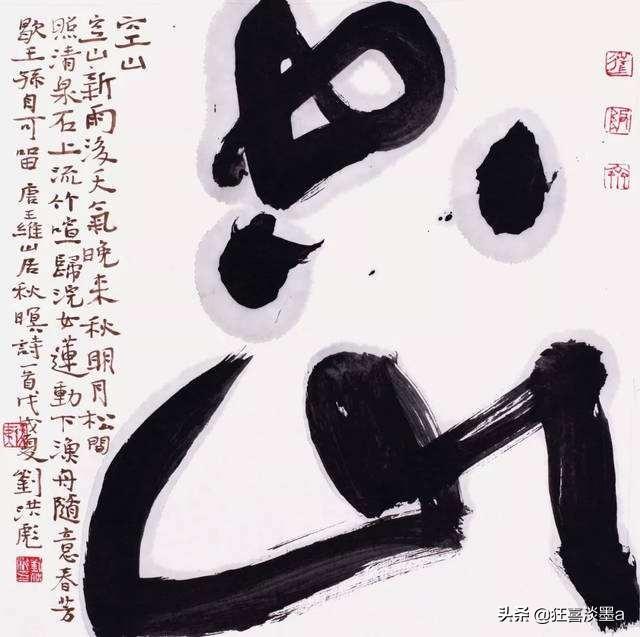 空山
空山
空山新雨後天氣晚来秋明月松間
照清泉石上流竹喧歸浣女蓮動下漁舟隨意春芳
歇王孫自可留 唐王維山居秋暝詩一首戊戌夏劉洪彪
头条 @狂喜淡墨a